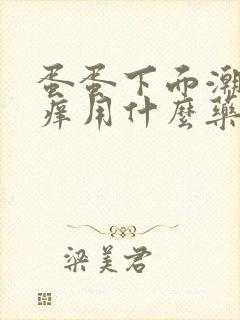 蛋蛋下面潮
痒用什麼藥
梁美君